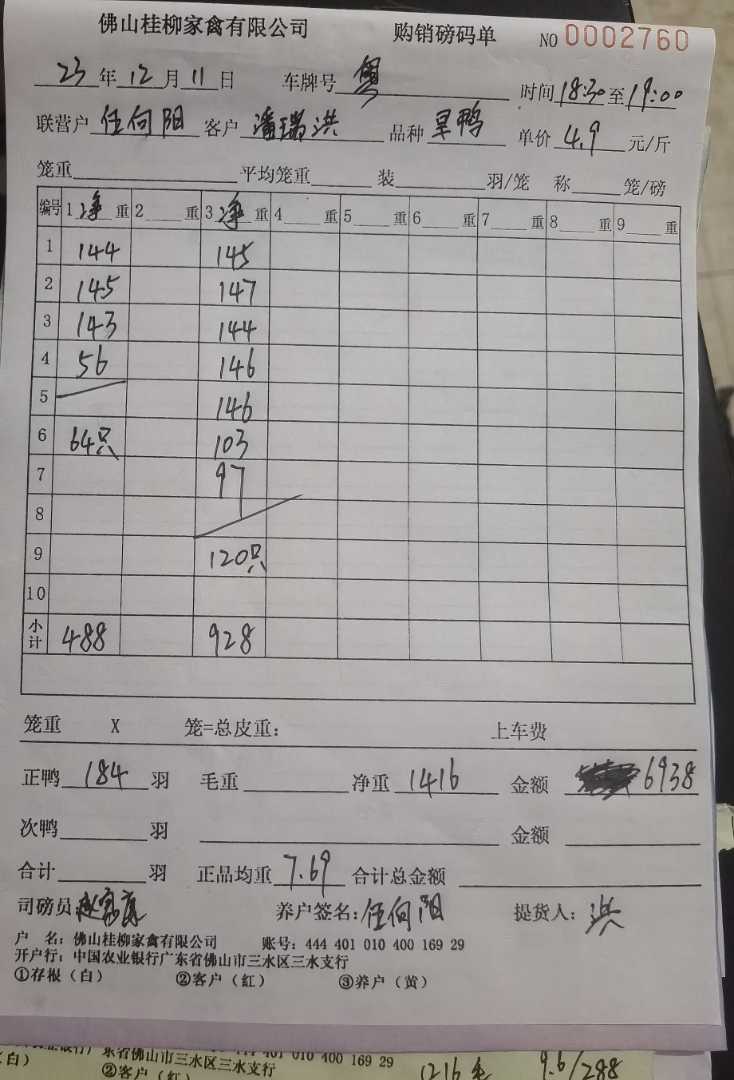 佛山桂柳家禽有限公司 购销磅码单 NO 0002760
23年12月11日 车牌号 粤 时间18:30至19:00
联营户 任向阳 客户 潘瑞洪 品种 旱鸭 单价 4.9 元/斤
笼重 平均笼重 装 羽/笼 称 笼/磅
编号 1 净 重 2 重 3 净 重 4 重 5 重 6 重 7 重 8 重 9 重
1 144 145
2 145 147
3 143 144
4 56 146
5 146
6 64只 103
7 97
8
9 120只
10
小计 488 928
笼重 X 笼=总皮重: 上车费
正鸭 184 羽 毛重 净重 1416 金额 6938
次鸭 羽 金额
合计 羽 正品均重 7.69 合计总金额
司磅员 养户签名: 任向阳 提货人: 洪
户 名: 佛山桂柳家禽有限公司 账号: 444 401 010 400 169 29
开户行: 中国农业银行广东省佛山市三水区三水支行
①存根(白) ②客户(红) ③养户(黄)
444 401 010 400 169 29
东省佛山市三水区三水支行
(白) ②客户(红) 9.6/288